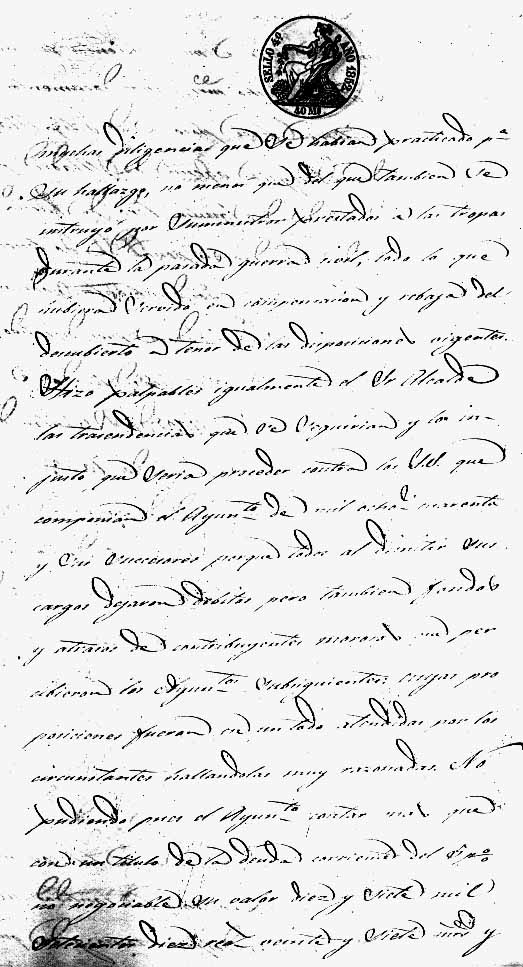 SELLO 4º AÑO 1852.
40 Ms
muchas diligencias que se habian practicado pª
su hallazgo, no menos que del que tambien se
instruyó por suministros prestados a las tropas
durante la pasada guerra civil, todo lo que
hubiera servido en compensacion y rebaja del
descubierto a tenor de las disposiciones vigentes.
Hizo palpables igualmente el Sr Alcalde
las trascendencias que se seguirian y lo in-
justo que seria proceder contra los S.S. que
componian el Ayuntto de mil ochos cuarenta
y sus succesores porque todos al dimitir sus
cargos dejaron debitos pero tambien fondos
y atrasos de contribuyentes morosos que per
cibieron los Ayuntos subsiguientes: cuyas pro
posiciones fueron en un todo atendidas por los
circunstantes hallandolas muy razonadas. No
pudiendo pues el Ayuntto contar mas que
con un titulo de la deuda corriente del 5 pº
no negociable su valor diez y siete mil
setecientos diez reas veinte y siete mrs y